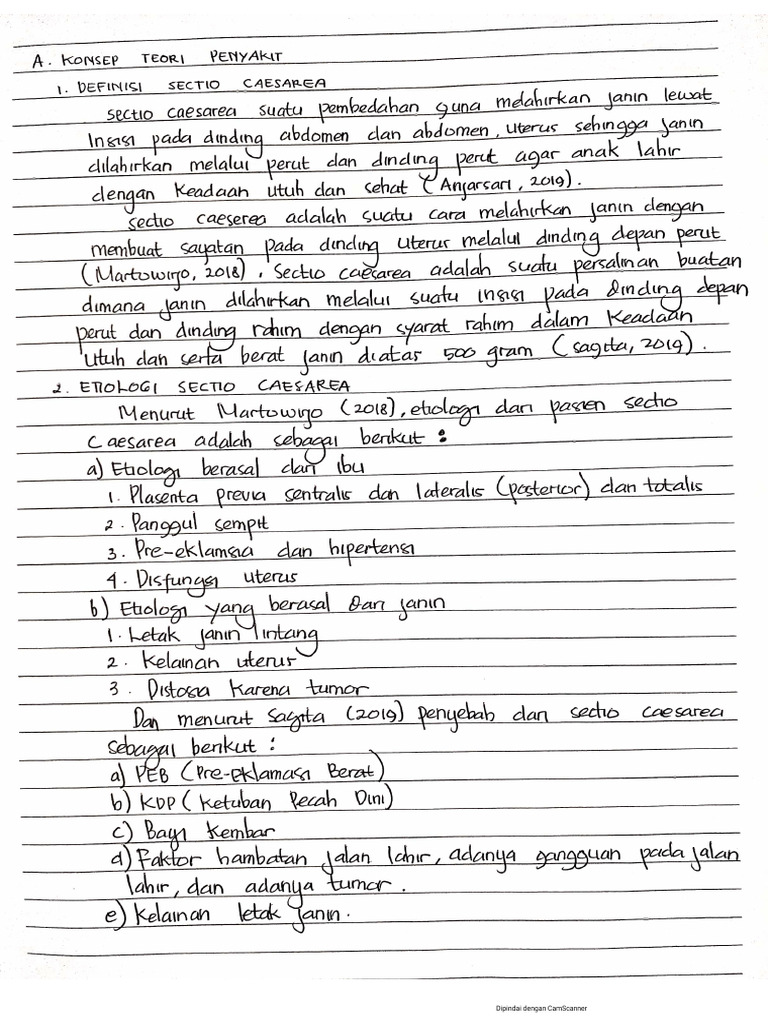 A. KONSEP TEORI PENYAKIT
1. DEFINISI SECTIO CAESAREA
sectio caesarea suatu pembedahan guna melahirkan janin lewat
Insisi pada dinding abdomen dan abdomen, uterus sehingga janin
dilahirkan melalui perut dan dinding perut agar anak lahir
dengan Keadaan utuh dan sehat (Anjarsari, 2019).
sectio caeserea adalah suatu cara melahirkan janin dengan
membuat sayatan pada dinding uterus melalui dinding depan perut
(Martowirjo, 2018). Sectio caesarea adalah suatu persalinan buatan
dimana janin dilahirkan melalui suatu insisi pada dinding depan
perut dan dinding rahim dengan syarat rahim dalam Keadaan
utuh dan serta berat janin diatas 500 gram (sagita, 2019).
2. ETIOLOGI SECTIO CAESAREA
Menurut Martowirjo (2018), etiologi dari pasien sectio
Caesarea adalah sebagai berikut :
a) Etiologi berasal dari ibu
1. Plasenta previa sentralis dan lateralis (posterior) dan totalis
2. Panggul sempit
3. Pre-eklamsia dan hipertensi
4. Disfungsi uterus
b) Etiologi yang berasal dari janin
1. Letak janin lintang
2. Kelainan uterus
3. Distosia Karena tumor
Dan menurut Sagita (2019) penyebab dari sectio caesarea
sebagai berikut :
a) PEB (Pre-eklamasi Berat)
b) KDP (Ketuban Pecah Dini)
c) Bayi Kembar
d) Faktor hambatan jalan lahir, adanya gangguan pada jalan
lahir, dan adanya tumor.
e) Kelainan letak janin.
Dipindai dengan CamScanner